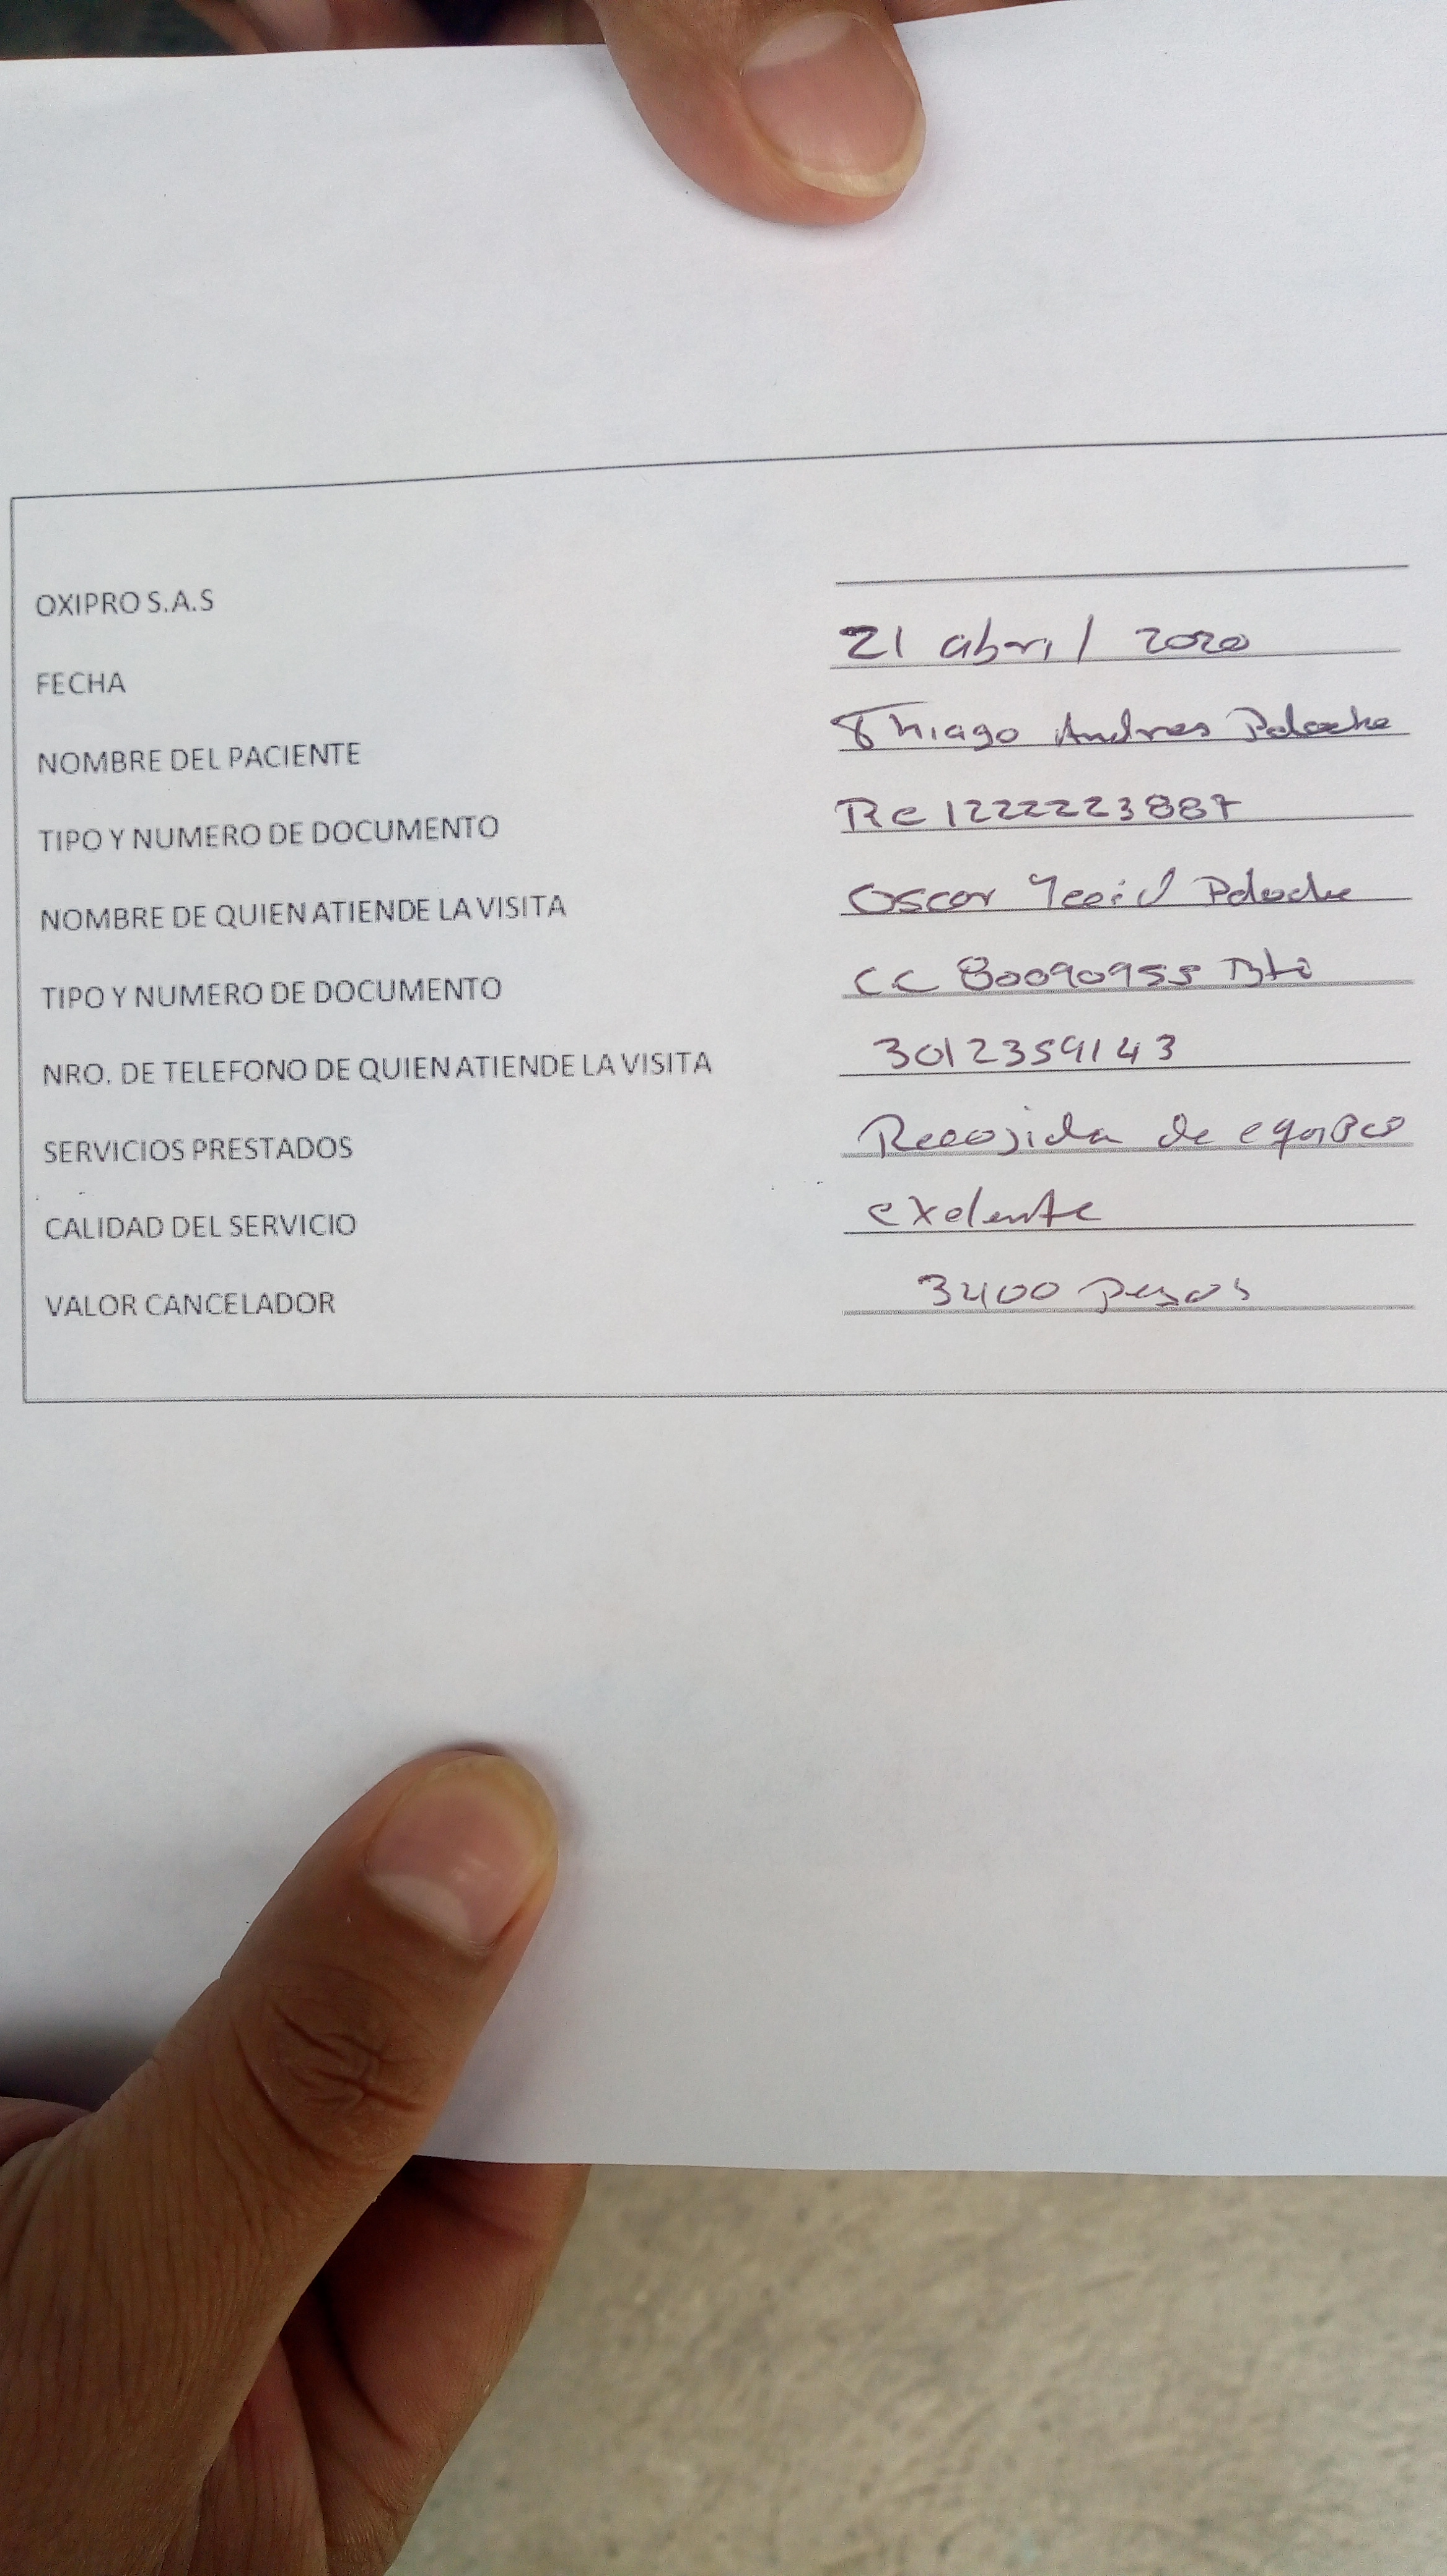 OXIPRO S.A.S
FECHA 21 abril / 2020
NOMBRE DEL PACIENTE Thiago Andres Poloche
TIPO Y NUMERO DE DOCUMENTO Rc 1222223887
NOMBRE DE QUIEN ATIENDE LA VISITA Oscar Poloche
TIPO Y NUMERO DE DOCUMENTO CC 80090955 Bta
NRO. DE TELEFONO DE QUIEN ATIENDE LA VISITA 3012359143
SERVICIOS PRESTADOS Recojida de equipos
CALIDAD DEL SERVICIO exelente
VALOR CANCELADOR 3400 pesos